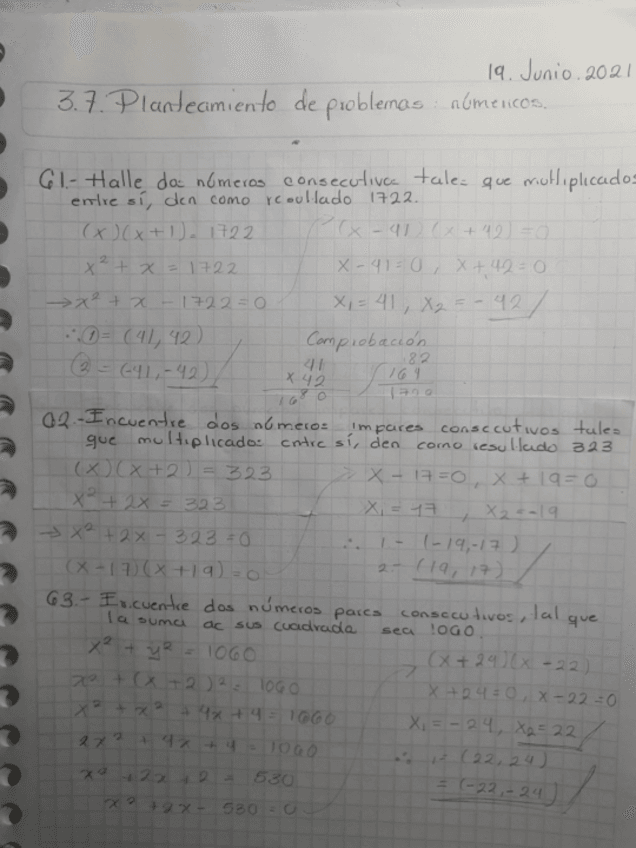 19. Junio. 2021
3.7. Planteamiento de problemas: númericos.
61.- Halle dos números consecutivos tales que multiplicados
entre sí, den como resultado 1722.
(x)(x+1) = 1722
x² + x = 1722
→ x² + x - 1722 = 0
∴ ① = (41, 42)
② = (-41, -42)
(x - 41)(x + 42) = 0
x - 41 = 0, x + 42 = 0
x₁ = 41, x₂ = - 42
Comprobación
41
x 42
82
164
62.- Encuentre dos números impares consecutivos tales
que multiplicados entre sí, den como resultado 323
(x)(x+2) = 323
x² + 2x = 323
→ x² + 2x - 323 = 0
(x - 17)(x + 19) = 0
x - 17 = 0, x + 19 = 0
x₁ = 17, x₂ = -19
∴ 1 - (-19, -17)
2 - (19, 17)
63.- Encuentre dos números pares consecutivos, tal que
la suma de sus cuadrados sea 1060.
x² + y² = 1060
x² + (x + 2)² = 1060
x² + x² + 4x + 4 = 1060
2x² + 4x + 4 = 1060
x² + 2x + 2 = 530
x² + 2x - 530 = 0
(x + 24)(x - 22)
x + 24 = 0, x - 22 = 0
x₁ = - 24, x₂ = 22
∴ 1 = (22, 24)
= (-22, -24)